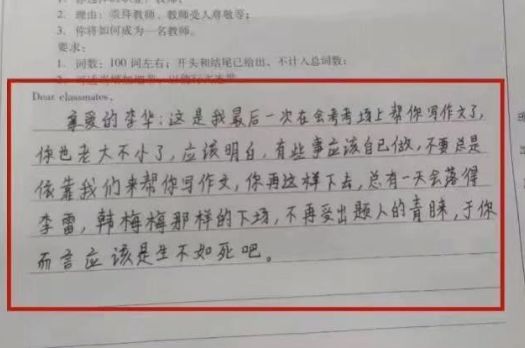 2. 理由:崇拜教师、教师受人尊敬等;
3. 你将如何成为一名教师。
要求:
1. 词数:100词左右;开头和结尾已给出,不计入总词数;
Dear classmates,
亲爱的李华:这是我最后一次在会考考场上帮你写作文了,
你也老大不小了,应该明白,有些事应该自己做,不要总是
依靠我们来帮你写作文,你再这样下去,总有一天会落得
李雷,韩梅梅那样的下场,不再受出题人的青睐,于你
而言应该是生不如死吧。